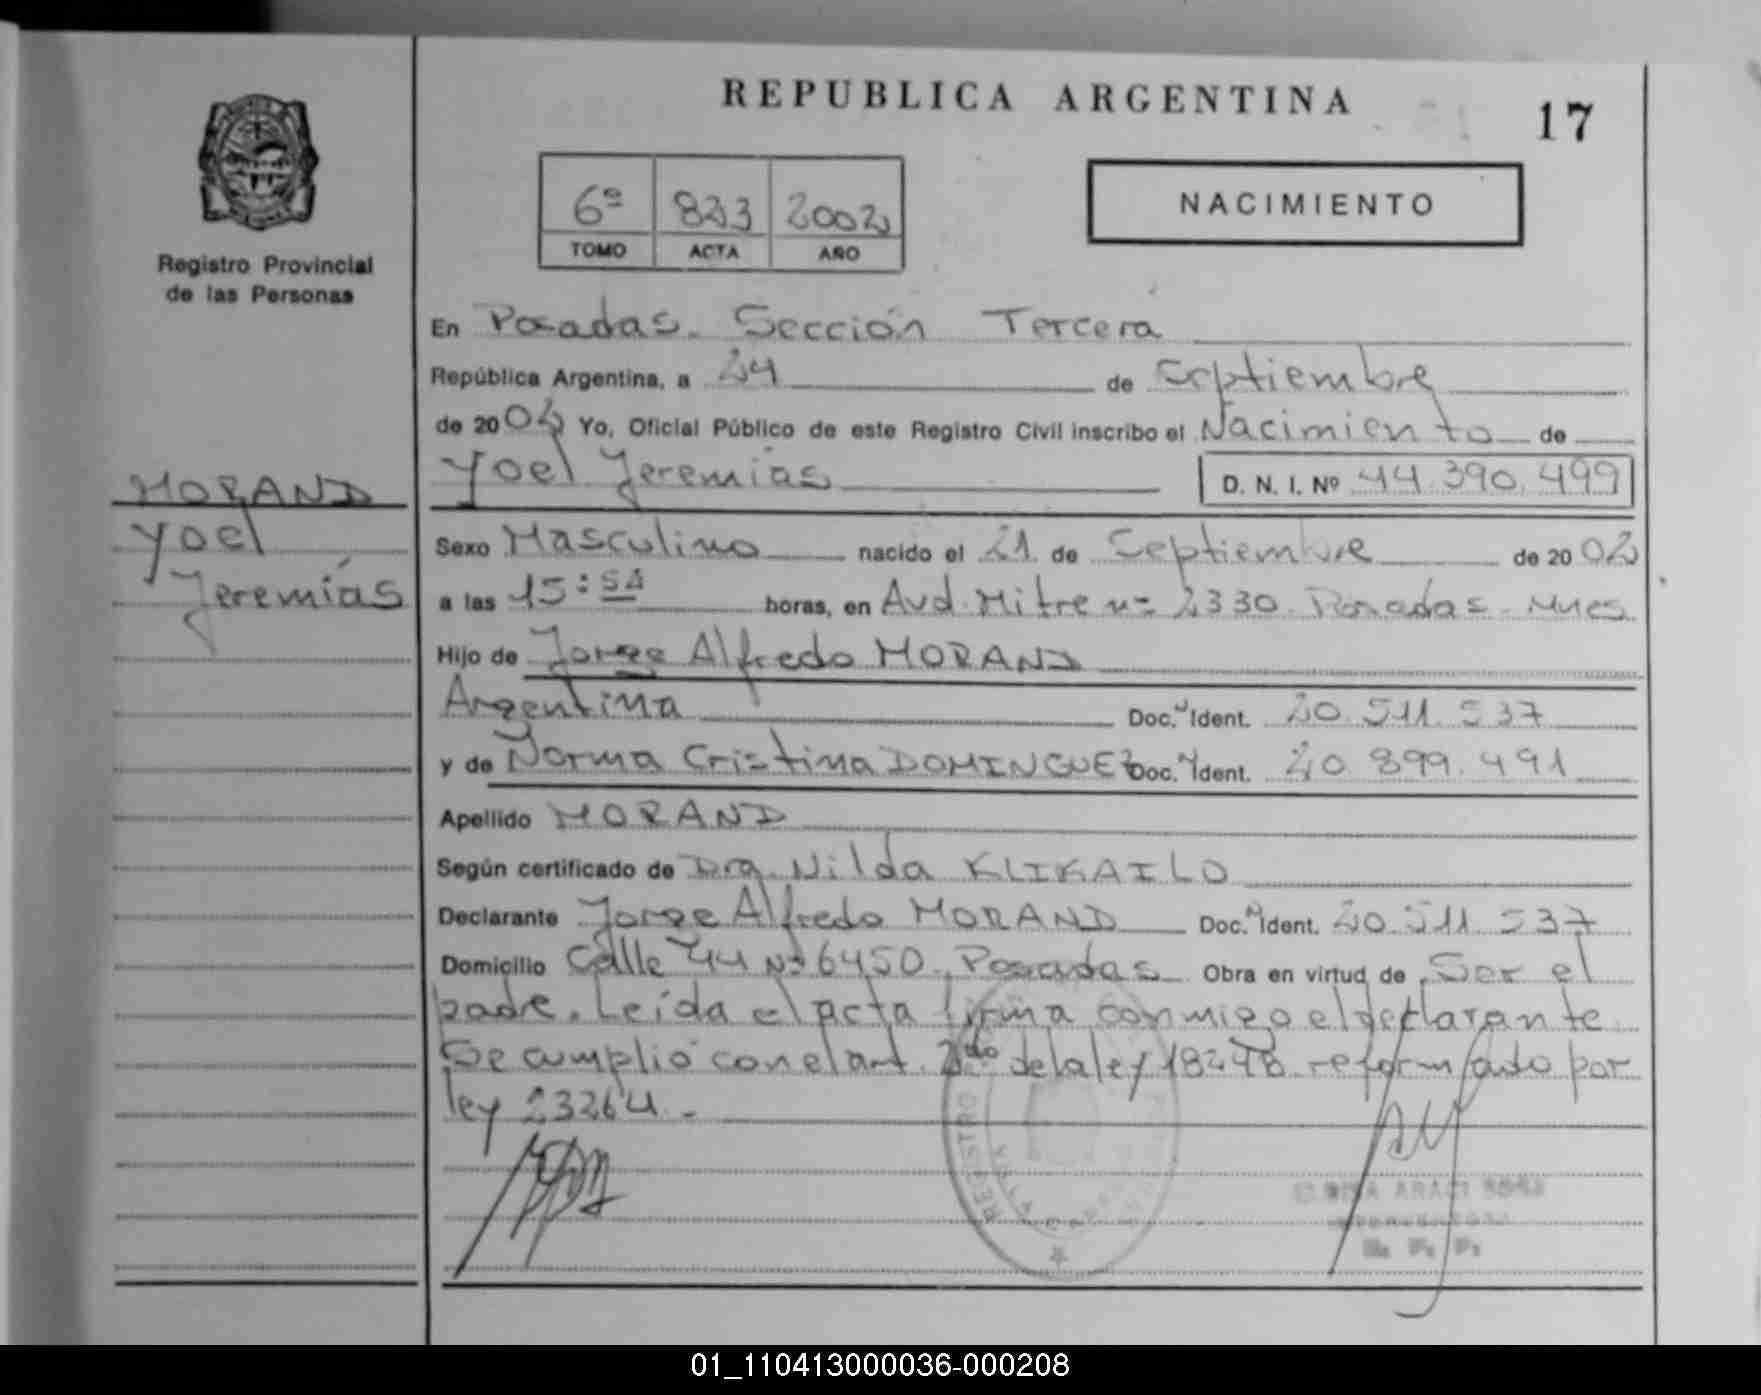 REPUBLICA ARGENTINA
17
6º 823 2002
TOMO ACTA AÑO
NACIMIENTO
Registro Provincial
de las Personas
En Posadas. Sección Tercera
República Argentina, a 24 de Septiembre
de 2002 Yo, Oficial Público de este Registro Civil inscribo el Nacimiento de
Yoel Jeremías D. N. I. Nº 44.390.499
MORAND
Yoel
Jeremías
Sexo Masculino nacido el 21 de Septiembre de 2002
a las 15: horas, en Avd. Mitre nº 2330. Posadas - Mnes
Hijo de Jorge Alfredo MORAND
Argentina Doc. N Ident. 20.511.537
y de Norma Cristina DOMINGUEZ Doc. N Ident. 20.899.491
Apellido MORAND
Según certificado de Dra. Nilda KLIKAILO
Declarante Jorge Alfredo MORAND Doc. N Ident. 20.511.537
Domicilio Calle 44 Nº 6450. Posadas Obra en virtud de Ser el
padre. Leída el acta firma conmigo el declarante
Se cumplió con el art. 2do de la ley 18248 reformado por
ley 23264.-
REGISTRO
R. P. P.
01_110413000036-000208